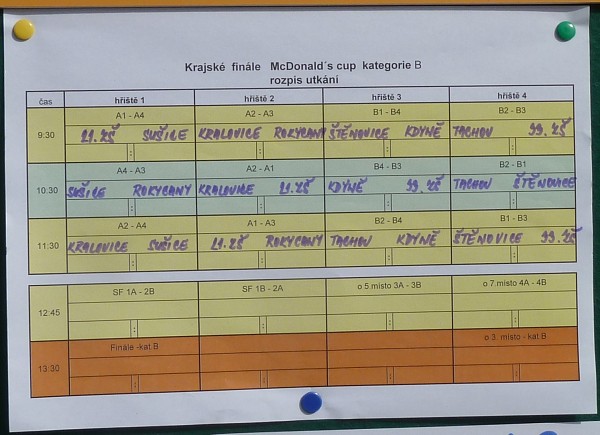 Krajské finále McDonald´s cup kategorie B
rozpis utkání
čas hřiště 1 hřiště 2 hřiště 3 hřiště 4
A1 - A4 A2 - A3 B1 - B4 B2 - B3
9:30 21.ZŠ SUŠICE KRALOVICE ROKYCANY ŠTĚNOVICE KDYNĚ TACHOV 99.ZŠ
: : : :
A4 - A3 A2 - A1 B4 - B3 B2 - B1
10:30 SUŠICE ROKYCANY KRALOVICE 21.ZŠ KDYNĚ 99.ZŠ TACHOV ŠTĚNOVICE
: : : :
A2 - A4 A1 - A3 B2 - B4 B1 - B3
11:30 KRALOVICE SUŠICE 21.ZŠ ROKYCANY TACHOV KDYNĚ ŠTĚNOVICE 99.ZŠ
: : : :
SF 1A - 2B SF 1B - 2A o 5.místo 3A - 3B o 7.místo 4A - 4B
12:45
: : : :
Finále -kat.B o 3. místo - kat.B
13:30
: : : :